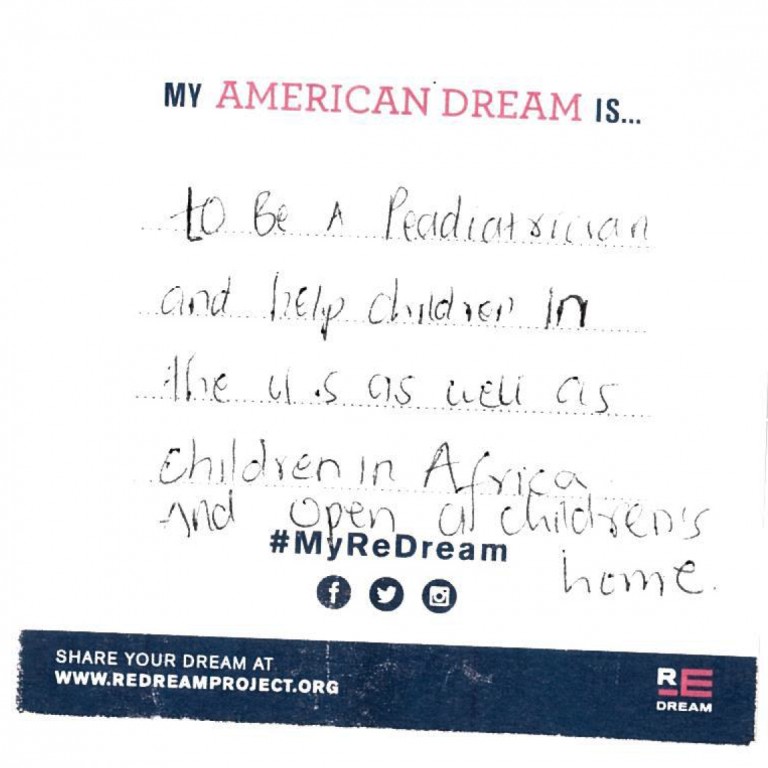 MY AMERICAN DREAM IS...
to Be A Peadiatrician
and help children in
the u.s as well as
children in Africa
And open a children's
#MyReDream
home.
SHARE YOUR DREAM AT
WWW.REDREAMPROJECT.ORG
RE
DREAM